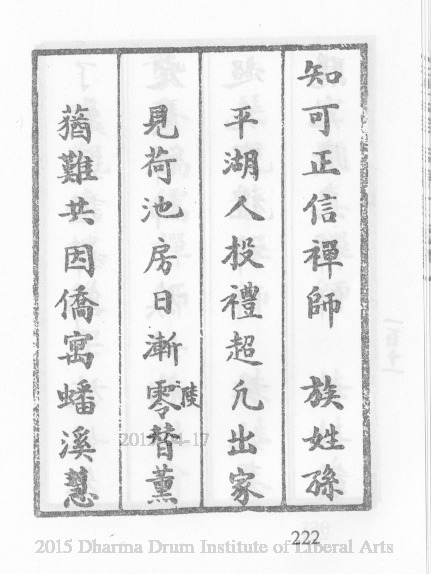 知可正信禪師　族姓孫
平湖人投禮超凡出家
見荷池房日漸零陵替薰
蕕難共因僑寓蟠溪慧
222
2015 Dharma Drum Institute of Liberal Arts